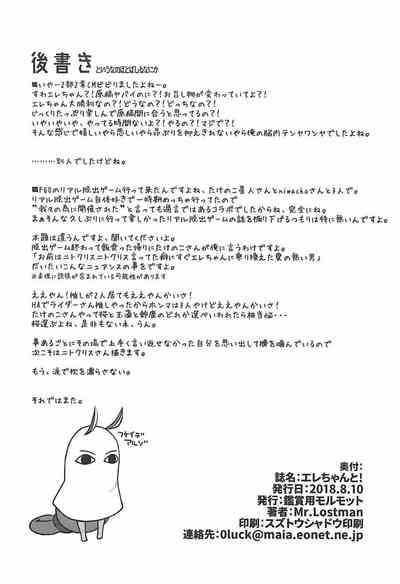 後書き というなのほとばしるなにか
■いやー2部2章CMビビりましたよねー。
すわエレちゃん?!原稿ヤバイのに?!お召し物が変わっていてよ?!
エレちゃん大勝利なの?!どうなの?!どっちなの?!
じっくりたっぷり楽しんで原稿間に合うと思ってるの?!
いやいやいや、やってる時間ないよ?!やるの?!マジで?!
そんな感じで嬉しいやら悲しいやら昂ぶりを抑えきれないやら俺の脳内テンヤワンヤでしたよね。
………別人でしたけどね。
■FGOのリアル脱出ゲーム行って来たんですよね、たけのこ星人さんとniwachoさんと3人で。
リアル脱出ゲーム自体好きで一時期めっちゃ行ってたので
"我々の為に開催された"と言っても過言ではあるコラボでしたからね、完全にね。
まぁそんな久しぶりに行って楽しかったリアル脱出ゲームの話を掘り下げるつもりは特に無いんですが。
本題は違うんですよ、聞いてくださいよ。
脱出ゲーム終わって飯食った帰りにたけのこさんが俺に言うわけですよ。
「お前はニトクリスニトクリス言ってた癖にすぐエレちゃんに乗り換えた愛の無い男」
だいたいこんなニュアンスの事をですよ。
※表現に誤張が含まれている可能性があります
ええやん!推しが2人居てもええやんかいさ!
HAでライダーさん推しやったからホンマは3人やけどええやんかいさ!
たけのこさんやって桜と玉藻と鈴鹿のどれか選べいわれたら相当悩・・・
桜選ぶよね、是非もないネ、うん。
事あるごとにその場で上手く言い返せなかった自分を思い出して臍を噛んでいるので
次こそはニトクリスさん描きます。
もう、涙で枕を濡らさない。
それではまた。
フケイデアルゾ
奥付:
誌名:エレちゃんと!
発行日:2018.8.10
発行:鑑賞用モルモット
著者:Mr.Lostman
印刷:スズトウシャドウ印刷
連絡先:0luck@maia.eonet.ne.jp